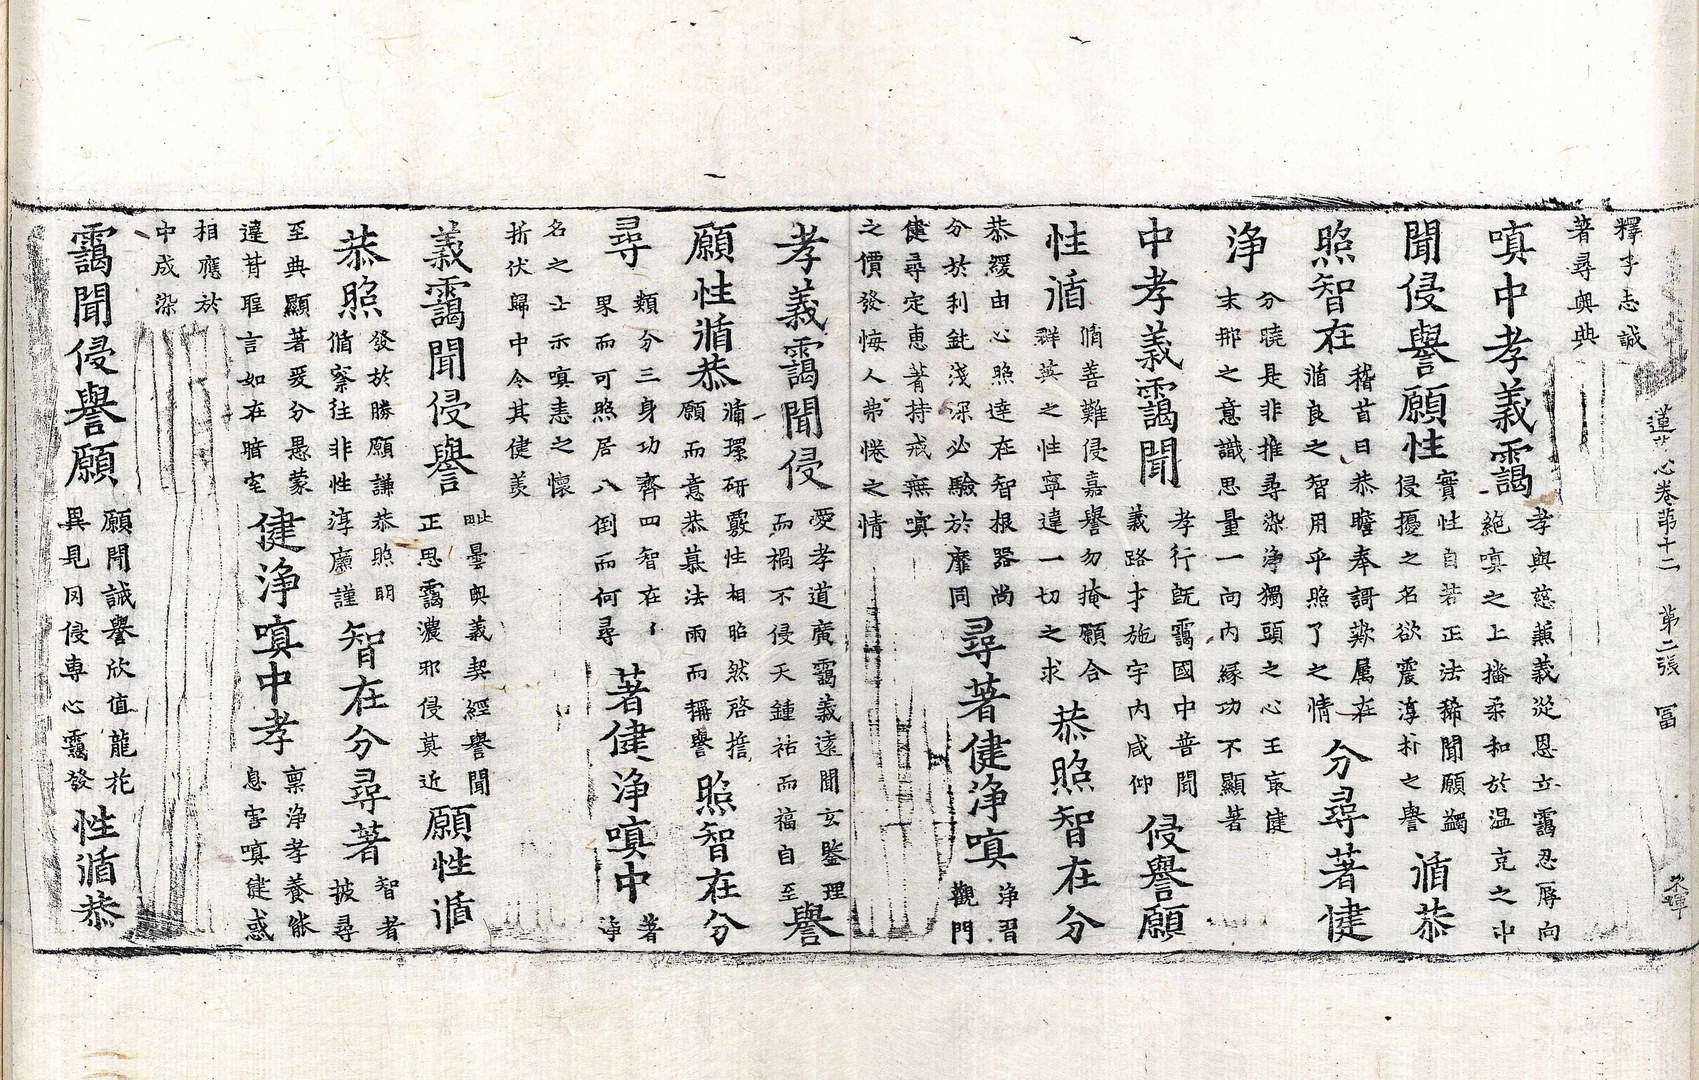 蓮花心卷苐十二 第二張 冨
釋子志誠
著尋奧典
嗔中孝義靄
孝與慈兼義從恩立靄忍辱向
絶嗔之上播柔和於温克之中
聞侵譽願性
實性自若正法稀聞願蠲
侵擾之名欲震淳朴之譽
循恭
照智在
稽首曰恭瞻奉謌歎属在
循良之智用乎照了之情
分尋著健
浄
分曉是非推尋染浄獨頭之心王㝡健
末那之意識思量一向内縁功不顯著
中孝義靄聞
孝行旣靄國中音聞
義路才施宇内咸仰
侵譽願
性循
循善難侵嘉譽勿掩願合
群英之性寧違一切之求
恭照智在分
恭緩由心照達在智根器尚
分於利鈍淺深必驗於靡同
尋著健浄嗔
浄習
觀門
健尋定恵著持戒無嗔
之價發悔人弗惓之情
孝義靄聞侵
愛孝道廣靄義遠聞玄鑒理
而禍不侵天鍾祐而福自至
譽
願性循恭
循環研覈性相昭然啓擔
願而意恭慕法雨而稱譽
照智在分
尋
類分三身功齊四智在
界而可照居八倒而何尋
著健浄嗔中
著
浄
名之士示嗔恚之懷
折伏歸中令其健羙
義靄聞侵譽
毗曇與義契經譽聞
正思靄濃邪侵莫近
願性循
恭照
發於勝願謙恭照明
循察往非性淳廉謹
智在分尋著
智者
披尋
至典顯著爰分愚蒙
違背聖言如在暗室
健浄嗔中孝
禀浄孝養能
息害嗔健惑
相應於
中成染
靄聞侵譽願
願聞誠譽欣值龍花
異見罔侵専心靄發
性循恭